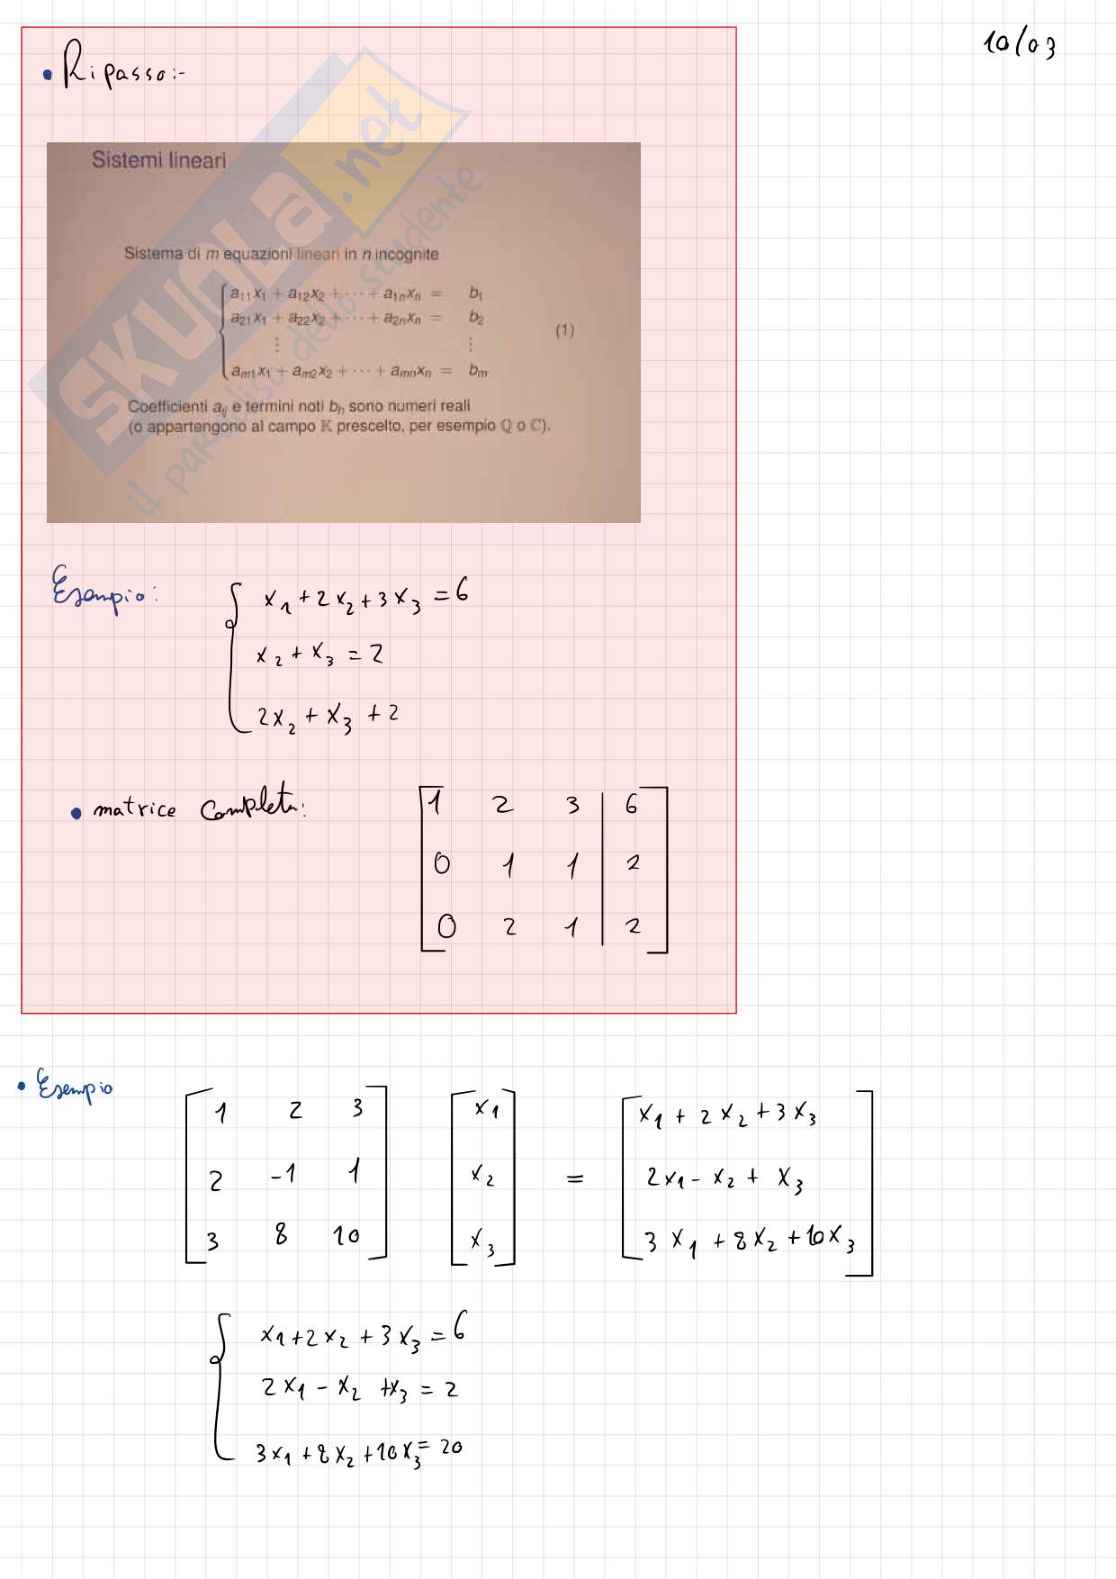 10/03
• Ripasso:-
Sistemi lineari
Sistema di m equazioni lineari in n incognite
a₁₁x₁ + a₁₂x₂ + ··· + a₁ₙxₙ = b₁
a₂₁x₁ + a₂₂x₂ + ··· + a₂ₙxₙ = b₂
⋮ ⋮
(1)
aₘ₁x₁ + aₘ₂x₂ + ··· + aₘₙxₙ = bₘ
Coefficienti aᵢⱼ e termini noti bₕ sono numeri reali
(o appartengono al campo 𝕂 prescelto, per esempio ℚ o ℂ).
SKUOLA.net
il paradiso dello studente
Esempio:
x₁ + 2x₂ + 3x₃ = 6
x₂ + x₃ = 2
2x₂ + x₃ + 2
• matrice completa:
1 2 3 | 6
0 1 1 | 2
0 2 1 | 2
• Esempio
1 2 3
2 -1 1
3 8 10
x₁
x₂
x₃
=
x₁ + 2x₂ + 3x₃
2x₁ - x₂ + x₃
3x₁ + 8x₂ + 10x₃
x₁ + 2x₂ + 3x₃ = 6
2x₁ - x₂ + x₃ = 2
3x₁ + 8x₂ + 10x₃ = 20